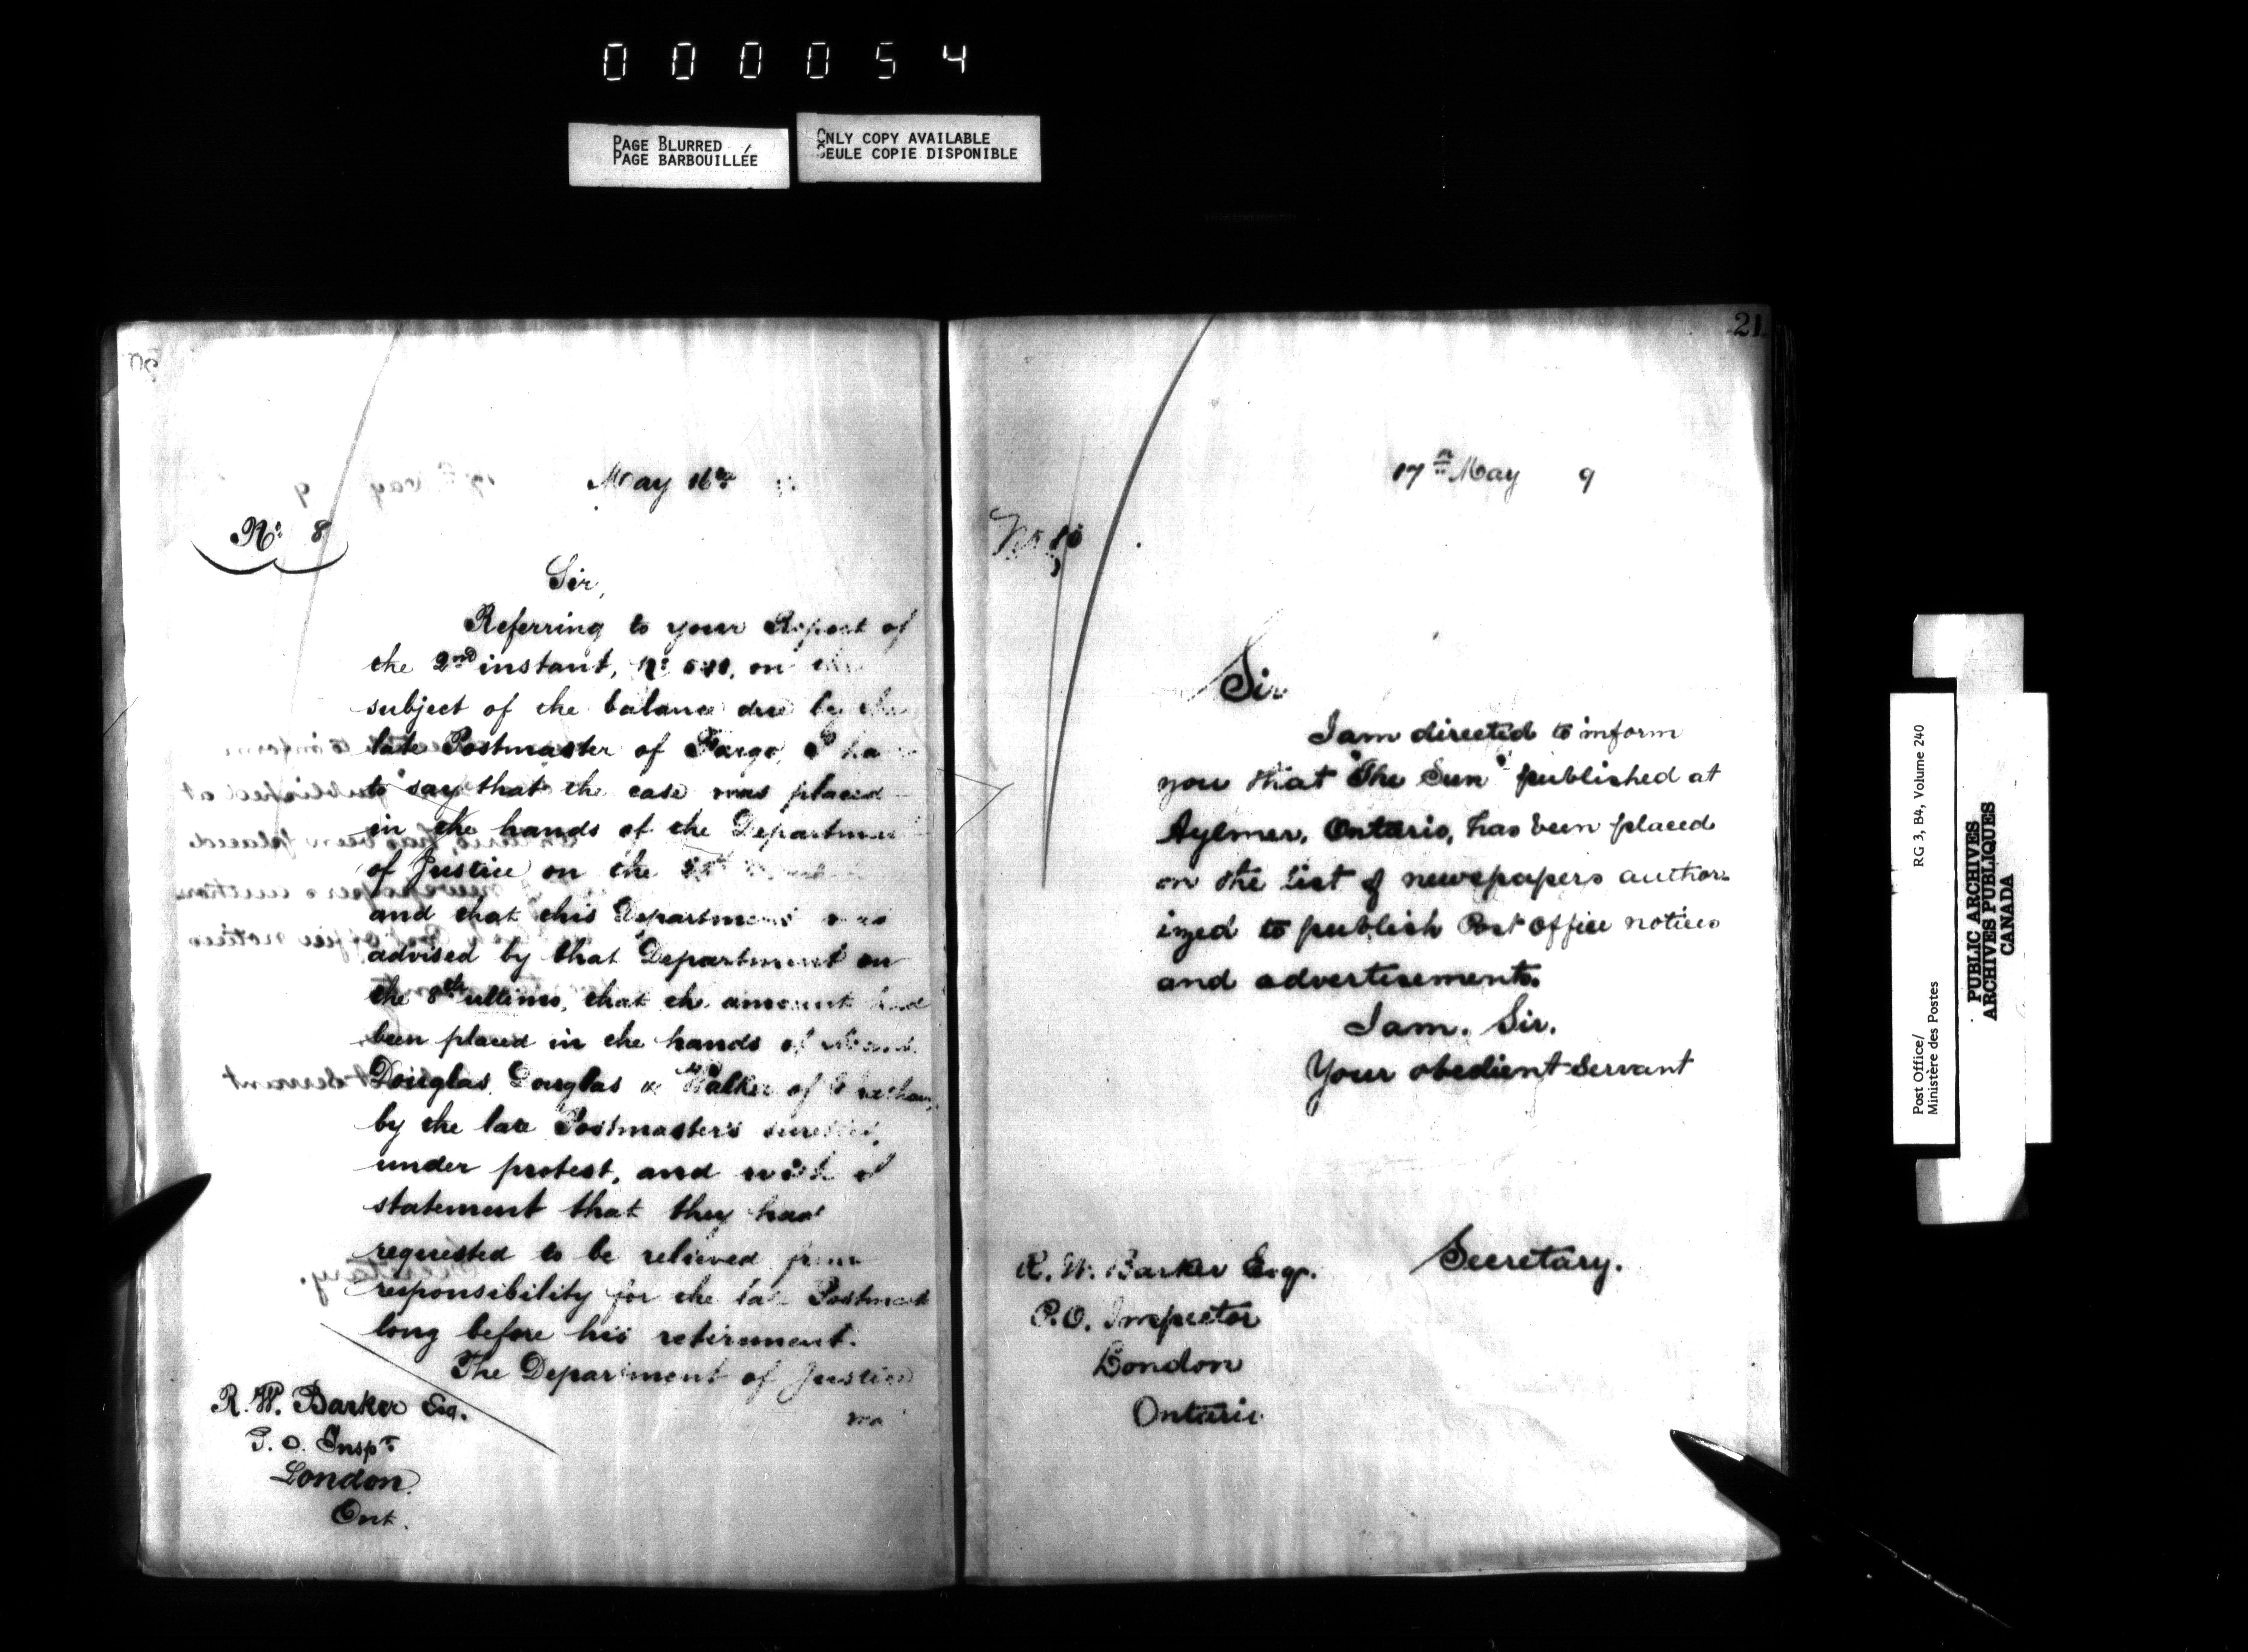 0 0 0 0 5 4
PAGE BLURRED
PAGE BARBOUILLÉE
ONLY COPY AVAILABLE
SEULE COPIE DISPONIBLE
May 16th
No. 8
Sir,
Referring to your Report of
the 2nd instant, No. on the
subject of the balance due by the
late Postmaster of Fargo, I ha
to say that the case was placed
in the hands of the Department
of Justice on the
and that this Department was
advised by that Department on
the 8th ultimo, that the amount had
been placed in the hands of
Douglas, Douglas & Walker of Chatham,
by the late Postmaster's sureties,
under protest, and with a
statement that they had
requested to be relieved from
responsibility for the late Postmast
long before his retirement.
The Department of Justice
R. W. Barker Esq.
P. O. Inspr
London.
Ont.
21
17th May 9
No 10
Sir
I am directed to inform
you that "The Sun" published at
Aylmer, Ontario, has been placed
on the list of newspapers author-
ized to publish Post Office notices
and advertisements.
I am, Sir.
Your obedient Servant
Secretary.
R. W. Barker Esqr.
P.O. Inspector
London
Ontario
Post Office/ RG 3, B4, Volume 240
Ministère des Postes
PUBLIC ARCHIVES
ARCHIVES PUBLIQUES
CANADA